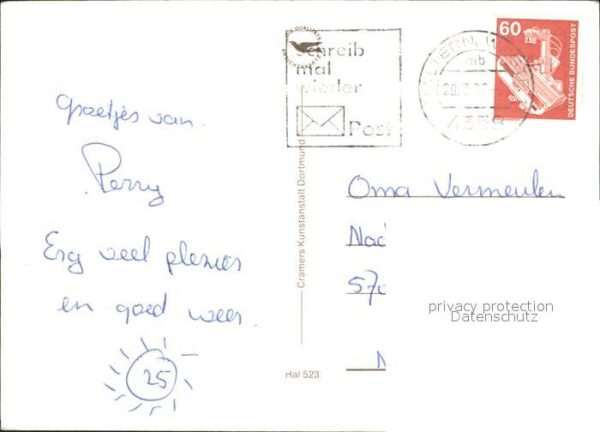 Groetjes van
Perry
Erg veel plezier
en goed weer.
25
Cramers Kunstanstalt Dortmund
Hal 523
schreib
mal
wieder
Post
mb
60
DEUTSCHE BUNDESPOST
Oma Vermeulen
privacy protection
Datenschutz